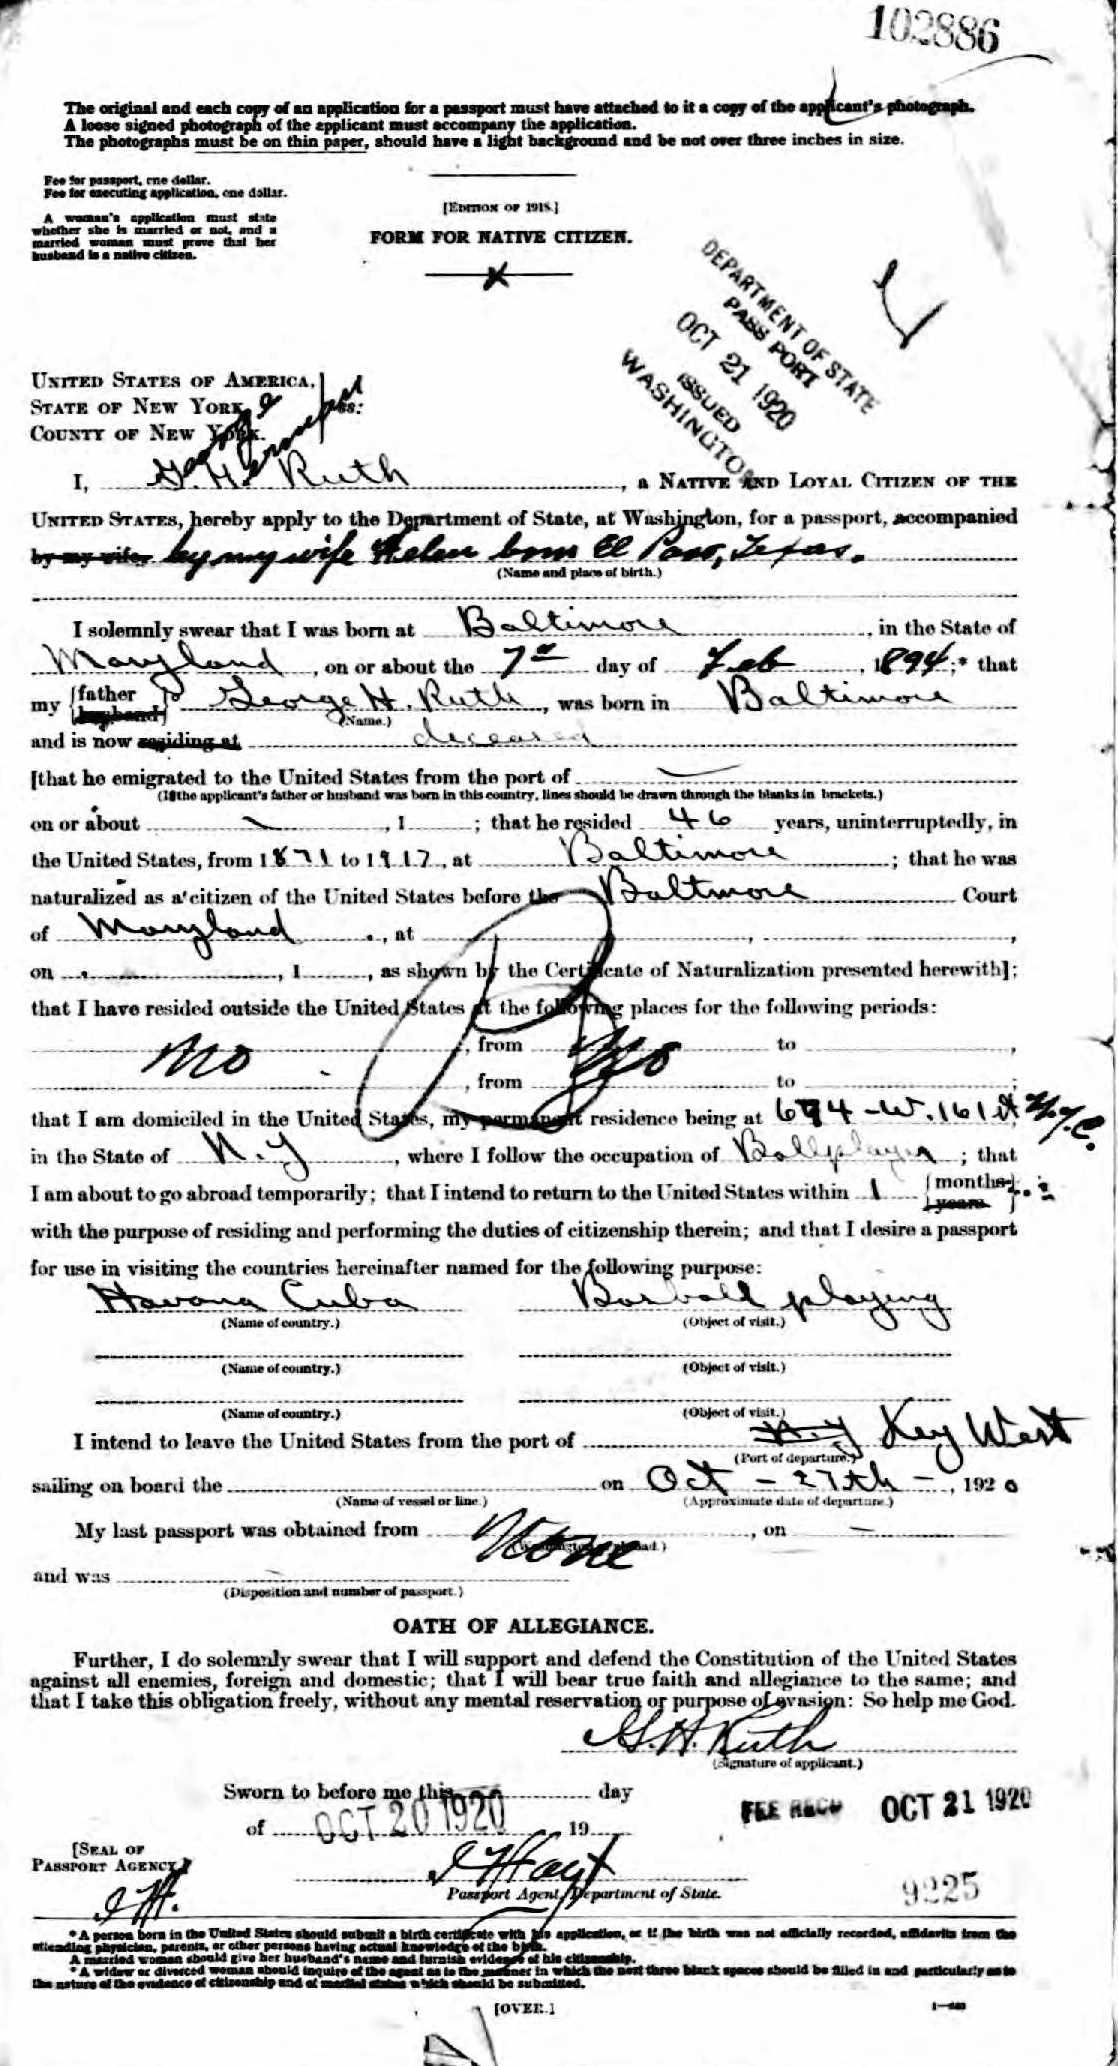 102886
The original and each copy of an application for a passport must have attached to it a copy of the applicant's photograph.
A loose signed photograph of the applicant must accompany the application.
The photographs must be on thin paper, should have a light background and be not over three inches in size.
Fee for passport, one dollar.
Fee for executing application, one dollar.
A woman's application must state
whether she is married or not, and a
married woman must prove that her
husband is a native citizen.
[EDITION OF 1918.]
FORM FOR NATIVE CITIZEN.
DEPARTMENT OF STATE
PASSPORT
OCT 21 1920
ISSUED
WASHINGTON
UNITED STATES OF AMERICA,
STATE OF NEW YORK, ss:
COUNTY OF NEW YORK.
George Herman
I, G. H. Ruth, a NATIVE AND LOYAL CITIZEN OF THE
UNITED STATES, hereby apply to the Department of State, at Washington, for a passport, accompanied
by my wife, by my wife Helen born El Paso, Texas.
(Name and place of birth.)
I solemnly swear that I was born at Baltimore, in the State of
Maryland, on or about the 7th day of Feb, 1894;* that
my {father husband} George H. Ruth, was born in Baltimore
(Name.)
and is now residing at deceased
[that he emigrated to the United States from the port of —
(If the applicant's father or husband was born in this country, lines should be drawn through the blanks in brackets.)
on or about , 1 ; that he resided 46 years, uninterruptedly, in
the United States, from 1871 to 1917, at Baltimore; that he was
naturalized as a citizen of the United States before the Baltimore Court
of Maryland, at , ,
on , 1 , as shown by the Certificate of Naturalization presented herewith];
that I have resided outside the United States at the following places for the following periods:
no, from no to ,
, from to ;
that I am domiciled in the United States, my permanent residence being at 694-W. 161 St N.Y.C.
in the State of N.Y, where I follow the occupation of Ballplayer; that
I am about to go abroad temporarily; that I intend to return to the United States within 1 {months years}
with the purpose of residing and performing the duties of citizenship therein; and that I desire a passport
for use in visiting the countries hereinafter named for the following purpose:
Havana Cuba Baseball playing
(Name of country.) (Object of visit.)
(Name of country.) (Object of visit.)
(Name of country.) (Object of visit.)
I intend to leave the United States from the port of N.Y Key West
(Port of departure.)
sailing on board the on Oct - 27th -, 1920
(Name of vessel or line.) (Approximate date of departure.)
My last passport was obtained from None, on —
and was
(Disposition and number of passport.)
OATH OF ALLEGIANCE.
Further, I do solemnly swear that I will support and defend the Constitution of the United States
against all enemies, foreign and domestic; that I will bear true faith and allegiance to the same; and
that I take this obligation freely, without any mental reservation or purpose of evasion: So help me God.
G. H. Ruth
(Signature of applicant.)
Sworn to before me this day
of OCT 20 1920, 19
FEE RECD OCT 21 1920
[SEAL OF
PASSPORT AGENCY.]
Passport Agent, Department of State.
9225
* A person born in the United States should submit a birth certificate with his application, or if the birth was not officially recorded, affidavits from the
attending physician, parents, or other persons having actual knowledge of the birth.
A married woman should give her husband's name and furnish evidence of his citizenship.
* A widow or divorced woman should inquire of the agent as to the manner in which the next three blank spaces should be filled in and particularly as to
the nature of the evidence of citizenship and of marital status which should be submitted.
[OVER.]